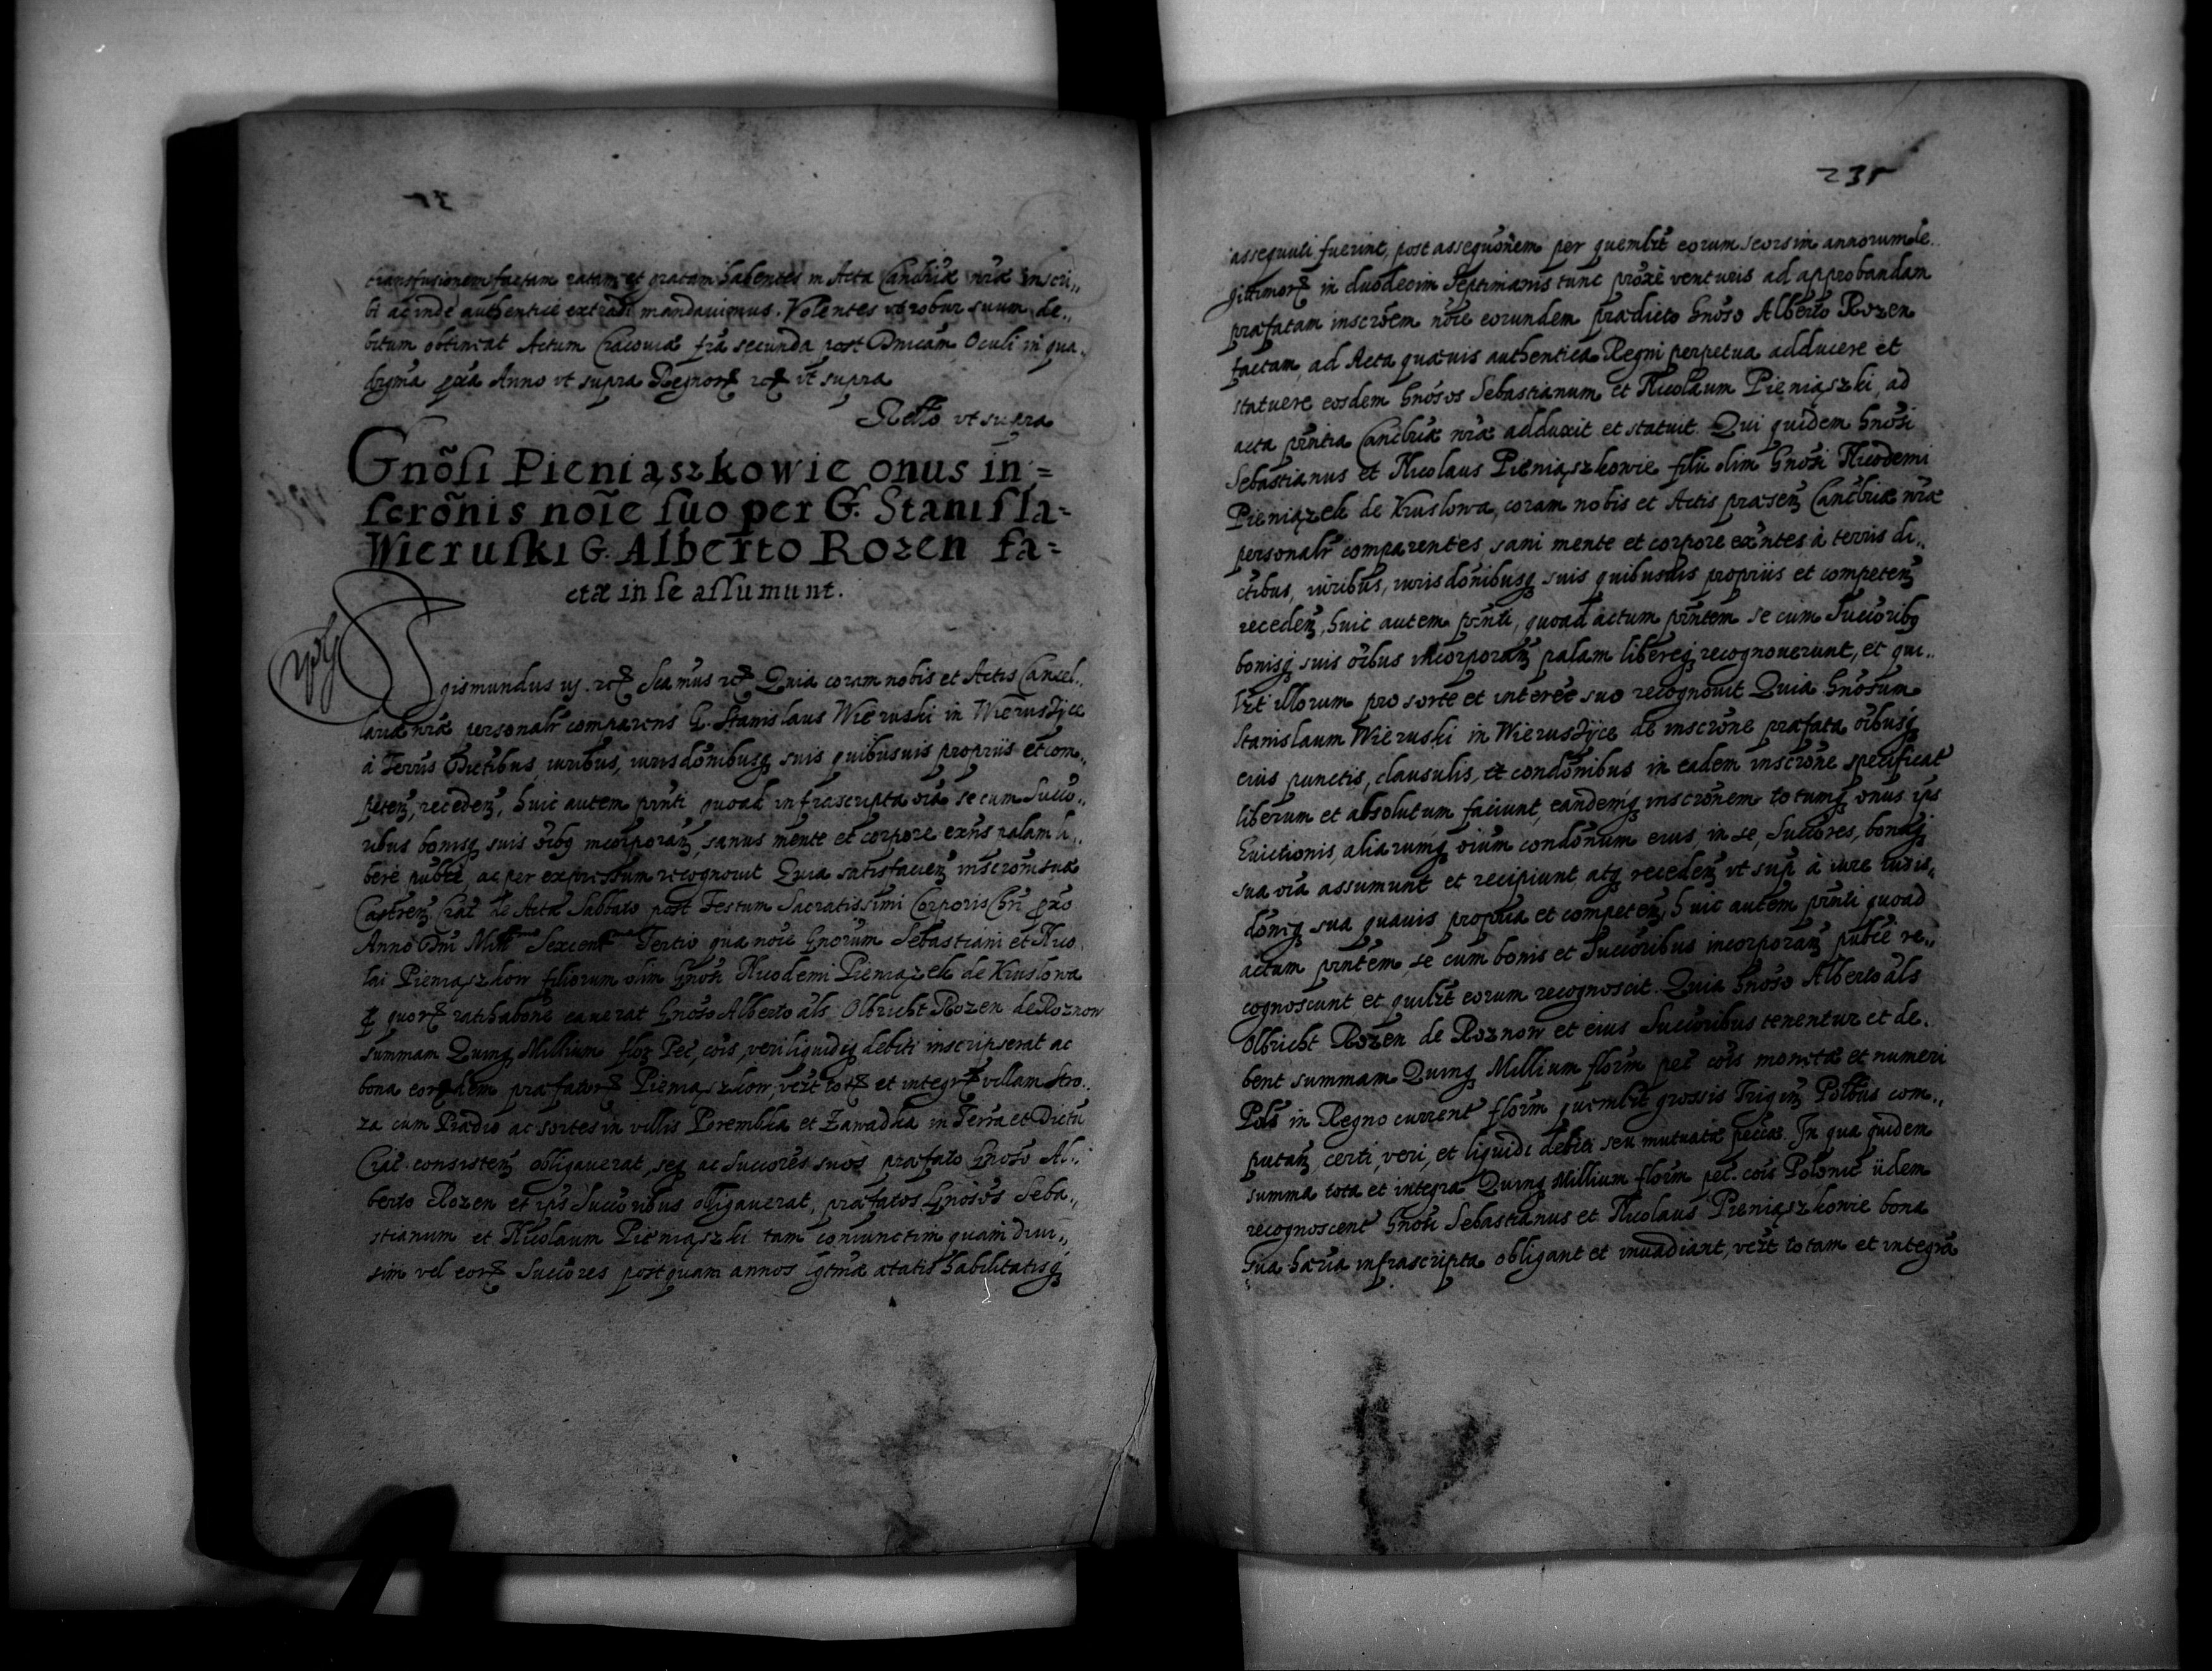 transfusionem factam ratam et gratam habentes in Acta Cancllriæ nræ inscri„
bi ac inde authenticè extradi mandauimus. Volentes vt robur suum de„
bitum obtineat Actum Cracouiæ fria secunda post Dnicam Oculi in qua„
drgma pxia Anno vt supra Regnorꝝ ꝛcꝝ vt supra
Rello vt supra
Gnõsi Pieniąszkowie onus in=
scrõnis noĩe suo per G. Stanisla=
Wieruski G. Alberto Rozen fa=
ctæ in se assumunt.
Sigismundus iij. ꝛcꝝ Scamus ꝛcꝝ Quia coram nobis et Actis Cancel„
lariæ nræ personalr comparens G. Stanislaus Wieruski in Wierusżyce
à Terris Districtibus, iuribus, iurisdõnibusqꝫ suis quibusuis propriis et com„
peteñ, recedeñ, huic autem prñti quoad infrascripta oĩa se cum Succo„
ribus bonisqꝫ suis oĩbꝫ incorporañ, sanus mente et corpore exñs palam li„
berè publcè, ac per expressum recognouit Quia satisfacieñ inscrõni suæ
Castreñ Craẽ de Acta Sabbato post Festum Sacratissimi Corporis Chri pxo
Anno Dñi Mill Sexcent Tertio qua noĩe Gnorum Sebastiani et Nico„
lai Pieniąszkow filiorum olim Gnosi Nicodemi Pieniązek de Kruslowa
ꝓ quorꝝ ratihabõne cauerat Gnoso Alberto als Olbricht Rozen de Roznow
summam Quinqꝫ Millium floꝝ Pec, cois, veri liquidiqꝫ debiti inscripserat ac
bona eorꝝdem præfatorꝝ Pieniąszkow, vczt totꝝ et integrꝝ villam Stro„
za cum Prædio ac sortes in villis Porembka et Zawadka in Terra et Dictu
Craẽ consisteñ obligauerat, seqꝫ ac Succores suos præfato Gnoso Al„
berto Rozen et ips Succoribus obligauerat, præfatos Gnosos Seba„
stianum et Nicolaum Pieniąszki tam coniunctim quam diui„
sim vel eorꝝ Succores postquam annos lgtmæ ætatis habilitatisqꝫ
235
assequuti fuerint, post assequõnem per quemlzt eorum seorsim annorum le„
gittimorꝝ in duodecim Septimanis tunc proxè venturis ad approbandam
præfatam inscrõem noĩe eorundem prædicto Gnoso Alberto Rozen
factam, ad Acta quæuis authentica Regni perpetua adducere et
statuere eosdem Gnosos Sebastianum et Nicolaum Pieniąszki, ad
acta prñtia Cancllriæ nræ adduxit et statuit. Qui quidem Gnosi
Sebastianus et Nicolaus Pieniąszkowie filii olim Gnosi Nicodemi
Pieniązek de Kruslowa, coram nobis et Actis præseñ Cancllriæ nræ
personalr comparentes, sani mente et corpore exñtes à terris di„
ctibus, iuribus, iurisdõnibusqꝫ suis quibusuis propriis et competeñ
recedeñ, huic autem prñti, quoad actum prñtem se cum Succoribꝫ
bonisqꝫ suis oĩbus incorporañ palam libereqꝫ recognouerunt, et qui„
lzt illorum pro sorte et interèe suo recognouit Quia Gnosum
Stanislaum Wieruski in Wierusżyce de inscrõne præfata oĩbusqꝫ
eius punctis, clausulis, et condõnibus in eadem inscrõne specificat
liberum et absolutum faciunt, eandemqꝫ inscrõnem totumqꝫ onus ips
Euictionis, aliarumqꝫ oĩum condõnum eius, in se, Succores, bonaqꝫ
sua oĩa assumunt et recipiunt atqꝫ recedeñ vt sup à iure iuris„
dõniqꝫ sua quauis propria et competeñ, huic autem prñti quoad
actum prñtem, se cum bonis et Succoribus incorporañ publcè re„
cognoscunt et quilzt eorum recognoscit. Quia Gnoso Alberto als
Olbricht Rozen de Roznow et eius Succoribus tenentur et de„
bent summam Quinqꝫ Millium florm pec cois monetæ et numeri
Pols in Regno current florm quemlzt grossis Trigiñ Polbus com„
putañ, certi, veri, et liquidi debiti seu mutuatæ pecciæ. In qua quidem
summa tota et integra Quinqꝫ Millium florm pec. cois Polonic iidem
recognoscent Gnosi Sebastianus et Nicolaus Pieniąszkowie bona
sua hæria infrascripta obligant et inuadiant, vczt totam et integrã